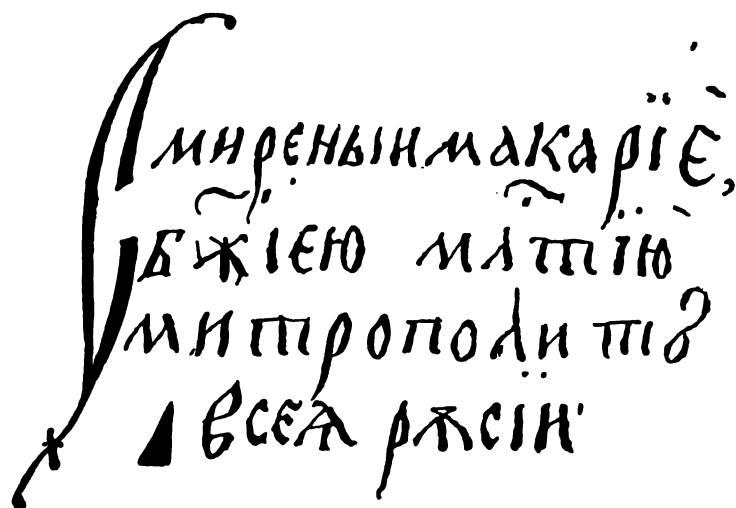 Смиреныи макарїє,
бж҃їєю мл҃тїю
митрополитъ
всеѧ рѫсїи